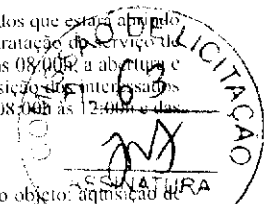 dos que estará abrindo
tratação do serviço de
às 08:00h, a abertura e
sição dos interessados
08:00h às 12:00h e das
o objeto: aquisição de
DE LICITAÇÃO
63
ASSINATURA